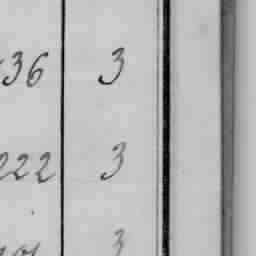 36 3
222 3
3